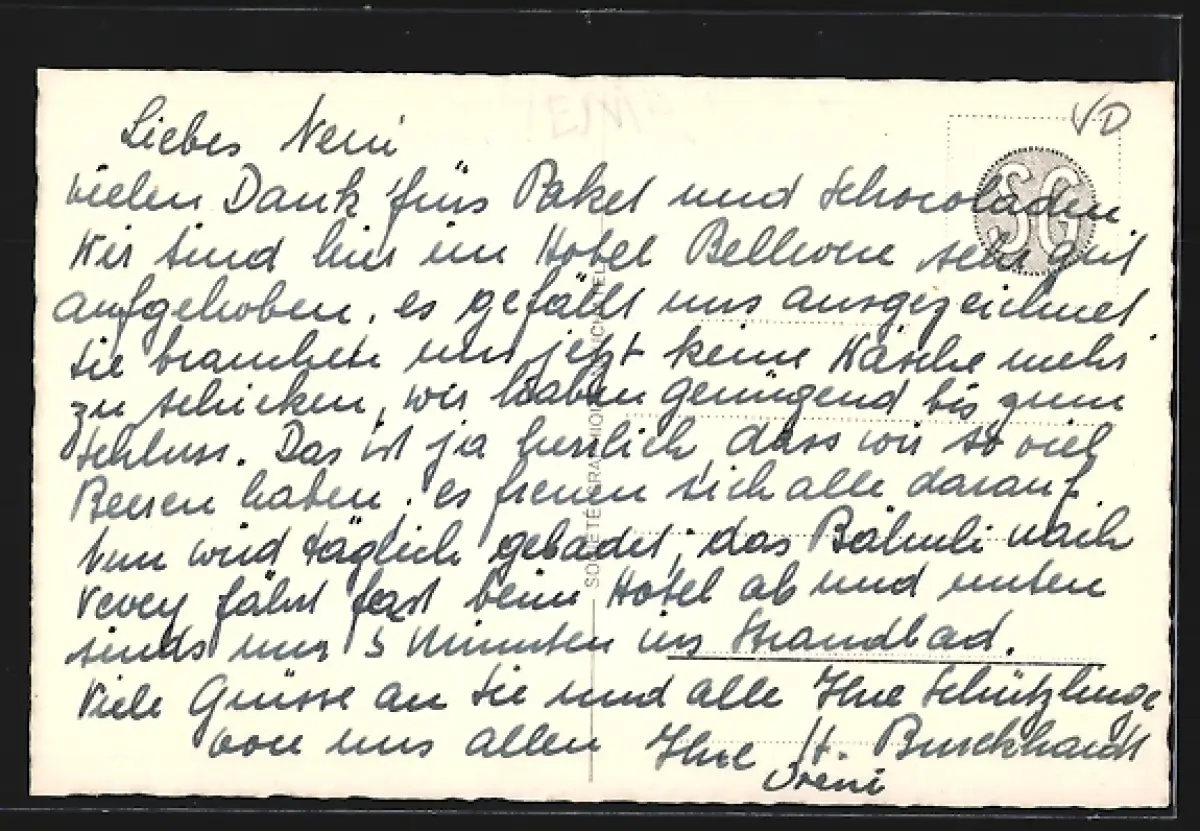 VD
SG
Liebes Neni
vielen Dank fürs Paket und Schocoladen
Wir sind hier im Hotel Bellevue sehr gut
aufgehoben, es gefällt uns ausgezeichnet.
Sie brauchen uns jetzt keine Wäsche mehr
zu schicken, wir haben genügend bis zum
Schluss. Das ist ja herrlich dass wir so viel
Beeren haben, es freuen sich alle darauf.
Nun wird täglich gebadet; das Bähnli nach
Vevey fährt fast beim Hotel ab und unten
sinds nur 5 Minuten ins Strandbad.
Viele Grüsse an Sie und alle Ihre Schützlinge
von uns allen Ihre H. Burckhardt
Vreni
SOCIÉTÉ GRAPHIQUE NEUCHATEL